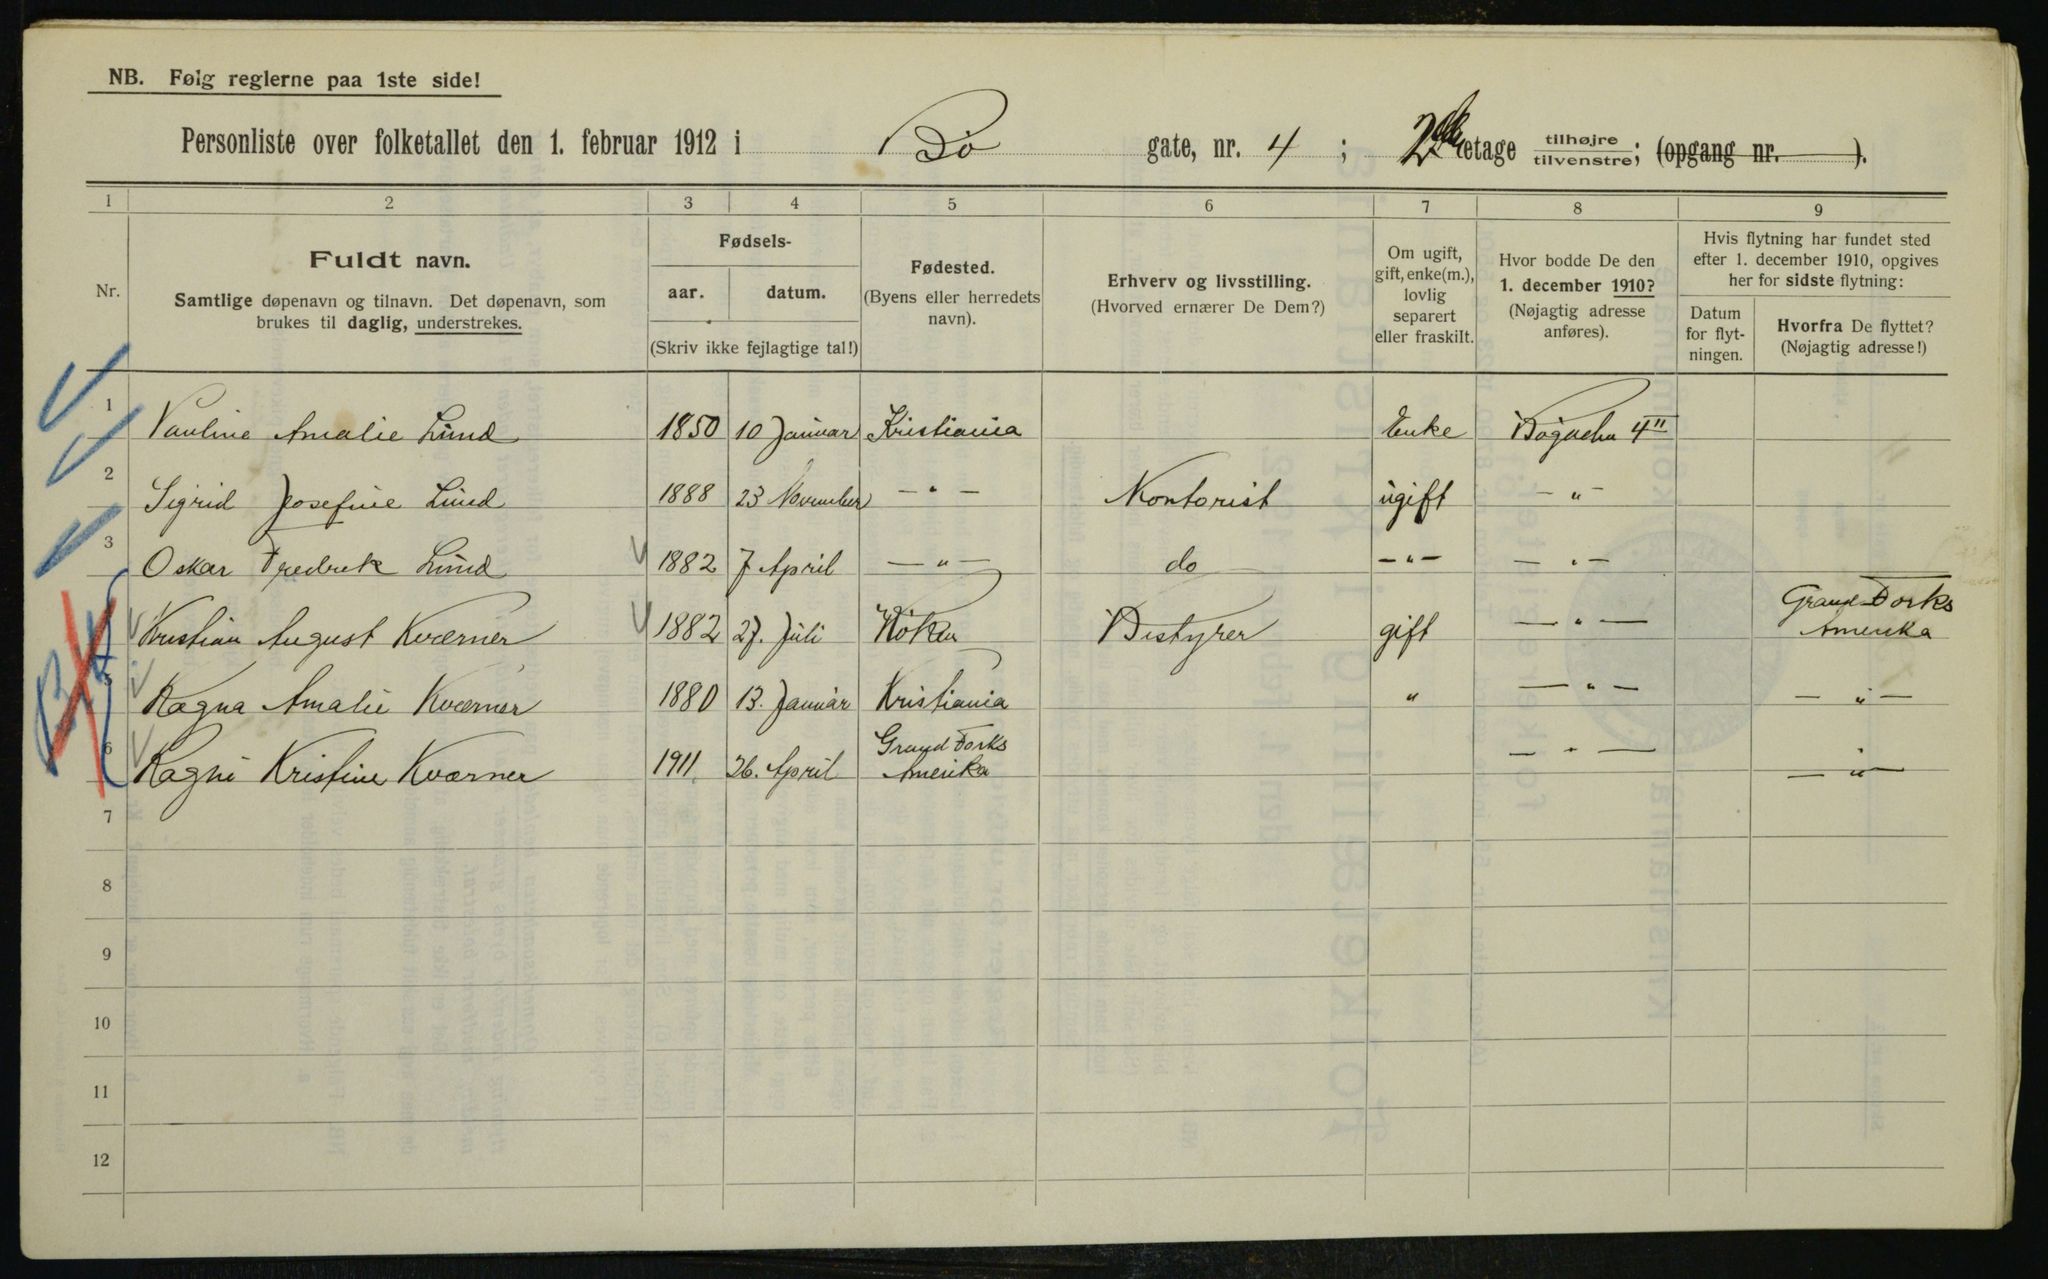 NB. Følg reglerne paa 1ste side!
Personliste over folketallet den 1. februar 1912 i Bø gate, nr. 4; 2 etage tilhøjre tilvenstre; (opgang nr. ).
1 2 3 4 5 6 7 8 9
Nr.
Fuldt navn.
Samtlige døpenavn og tilnavn. Det døpenavn, som
brukes til daglig, understrekes.
Fødsels-
aar. datum.
(Skriv ikke fejlagtige tal!)
Fødested.
(Byens eller herredets
navn).
Erhverv og livsstilling.
(Hvorved ernærer De Dem?)
Om ugift,
gift, enke(m.),
lovlig
separert
eller fraskilt.
Hvor bodde De den
1. december 1910?
(Nøjagtig adresse
anføres).
Hvis flytning har fundet sted
efter 1. december 1910, opgives
her for sidste flytning:
Datum
for flyt-
ningen.
Hvorfra De flyttet?
(Nøjagtig adresse!)
1 Pauline Amalie Lund 1850 10 Januar Kristiania Enke Bøgaden 4 II
2 Sigrid Josefine Lund 1888 23 November — " — Kontorist ugift — " —
3 Oskar Fredrik Lund 1882 7 April — " — do — " — — " —
Kristian August Kværner 1882 27. Juli Røken Bestyrer gift — " — Grand Forks
Amerika
5 Ragna Amalie Kværner 1880 13. Januar Kristiania " — " — — " —
6 Ragni Kristine Kværner 1911 26. April Grand Forks
Amerika — " — — " —
7
8
9
10
11
12